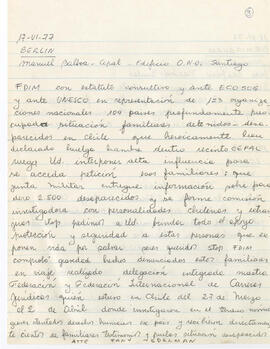 17-VI-77
BERLIN
Manuel Balboa - Cepal - Edificio O.N.U. Santiago
FDIM con estatuto consultivo y ante ECOSOC
y ante UNESCO en representación de 123 organiza
ciones nacionales 100 países profundamente preo
cupadas situación familiares detenidos desa
parecidos en Chile que heroicamente han
declarado huelga hambre dentro recinto CEPAL
ruego Ud. interponga alta influencia para
se acceda petición familiares a que
junta militar entregue información sobre para
dero 2.500 desaparecidos y se forme comisión
investigadora con personalidades chilenas y
stop pedimos a Ud. brinde todo el apoyo
protección y seguridad a estas personas que se
ponen vida por salvar seres queridos stop FDIM
comprobó gravedad hechos denunciados estos familiares
en viaje realizado delegación integrada nuestra
Federación y Federación Internacional de
Jurídicas quien estuvo en Chile del 27 de Marzo
al 2 de Abril donde investigaron en el
derechos humanos ese país y recibieron directamente
de cientos de familiares testimonios y
ATTE FANY EDELMAN